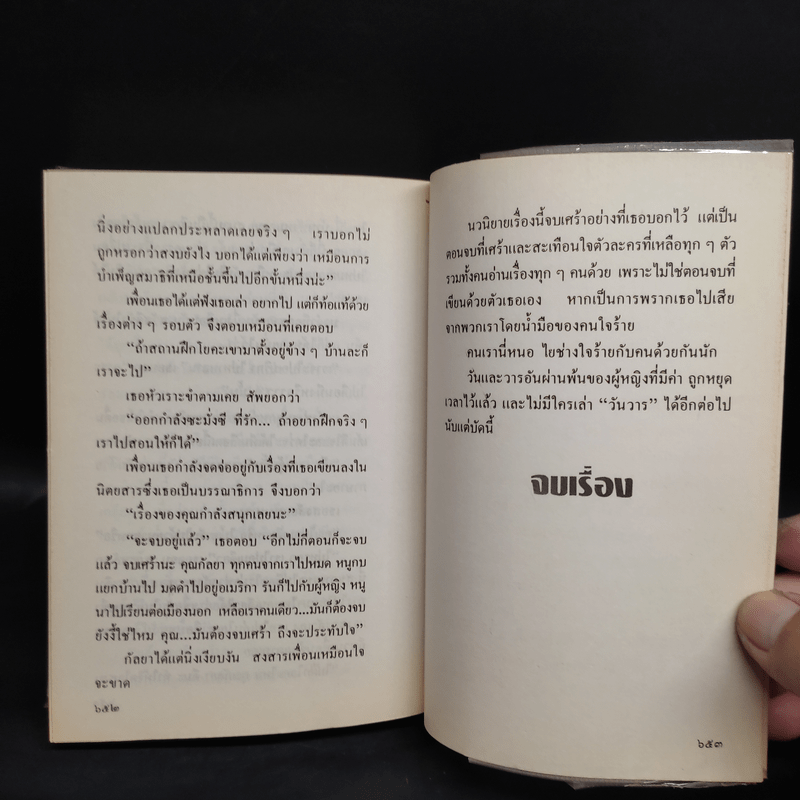 นิ่งอย่างแปลกประหลาดเลยจริง ๆ เราบอกไม่
ถูกหรอกว่าสงบยังไง บอกได้แต่เพียงว่า เหมือนการ
บำเพ็ญสมาธิที่เหนือชั้นขึ้นไปอีกขั้นหนึ่งน่ะ”
เพื่อนเธอได้แต่ฟังเธอเล่า อยากไป แต่ก็ท้อแท้ด้วย
เรื่องต่าง ๆ รอบตัว จึงตอบเหมือนที่เคยตอบ
“ถ้าสถานฝึกโยคะเขามาตั้งอยู่ข้าง ๆ บ้านละก็
เราจะไป”
เธอหัวเราะขำตามเคย สัพยอกว่า
“ออกกำลังซะมั่งซี ที่รัก... ถ้าอยากฝึกจริง ๆ
เราไปสอนให้ก็ได้”
เพื่อนเธอกำลังจดจ่ออยู่กับเรื่องที่เธอเขียนลงใน
นิตยสารซึ่งเธอเป็นบรรณาธิการ จึงบอกว่า
“เรื่องของคุณกำลังสนุกเลยนะ”
“จะจบอยู่แล้ว” เธอตอบ “อีกไม่กี่ตอนก็จะจบ
แล้ว จบเศร้านะ คุณกัลยา ทุกคนจากเราไปหมด หนูกบ
แยกบ้านไป มดดำไปอยู่อเมริกา รันก็ไปกับผู้หญิง หนู
นาไปเรียนต่อเมืองนอก เหลือเราคนเดียว...มันก็ต้องจบ
ยังงี้ใช่ไหม คุณ...มันต้องจบเศร้า ถึงจะประทับใจ”
กัลยาได้แต่นิ่งเงียบงัน สงสารเพื่อนเหมือนใจ
จะขาด
๖๕๒
นวนิยายเรื่องนี้จบเศร้าอย่างที่เธอบอกไว้ แต่เป็น
ตอนจบที่เศร้าและสะเทือนใจตัวละครที่เหลือทุก ๆ ตัว
รวมทั้งคนอ่านเรื่องทุก ๆ คนด้วย เพราะไม่ใช่ตอนจบที่
เขียนด้วยตัวเธอเอง หากเป็นการพรากเธอไปเสีย
จากพวกเราโดยน้ำมือของคนใจร้าย
คนเรานี่หนอ ไยช่างใจร้ายกับคนด้วยกันนัก
วันและวารอันผ่านพ้นของผู้หญิงที่มีค่า ถูกหยุด
เวลาไว้แล้ว และไม่มีใครเล่า “วันวาร” ได้อีกต่อไป
นับแต่บัดนี้
จบเรื่อง
๖๕๓